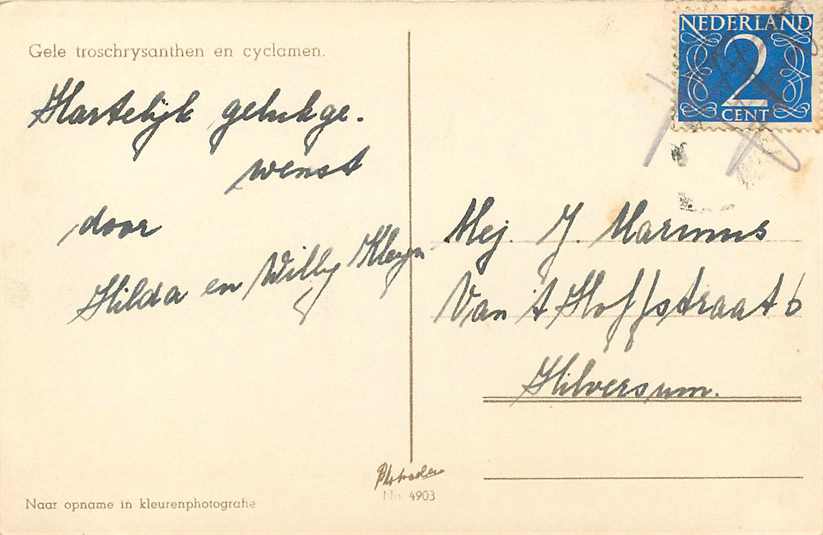 Gele troschrysanthen en cyclamen.
Hartelijk gelukge-
wenst
door
Hilda en Willy Kleyn
NEDERLAND
2
CENT
Mej. J. Marinus
Van 't Hoffstraat 6
Hilversum.
No. 4903
Naar opname in kleurenphotografie